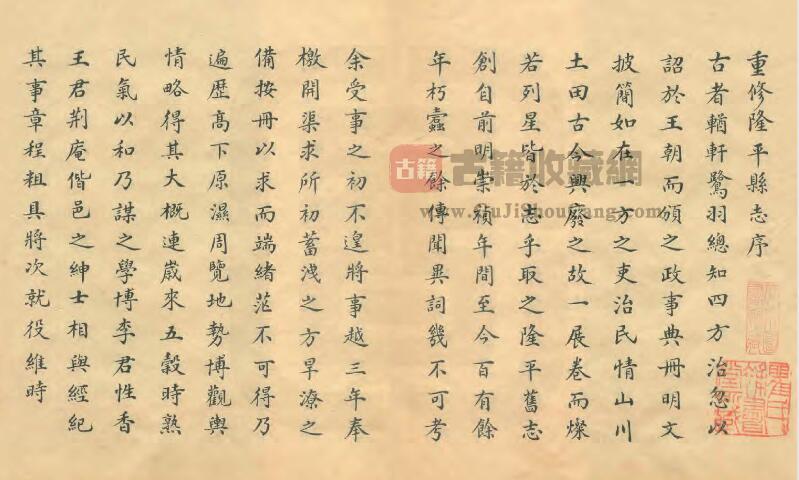 重修隆平縣志序
古者輶軒鷺羽總知四方治忽以
詔於王朝而頒之政事典冊明文
披簡如在一方之吏治民情山川
土田古今興廢之故一展卷而燦
若列星皆於志乎取之隆平舊志
創自前明崇禎年間至今百有餘
年朽蠹之餘傳聞異詞幾不可考
余受事之初不遑將事越三年奉
檄開渠求所初蓄洩之方旱潦之
備按冊以求而端緒茫不可得乃
遍歷高下原濕周覽地勢博觀輿
情略得其大概連歲來五穀時熟
民氣以和乃謀之學博李君性香
王君荆庵偕邑之紳士相與經紀
其事章程粗具將次就役維時
古籍
古籍收藏網
www.GuJiShouCang.com